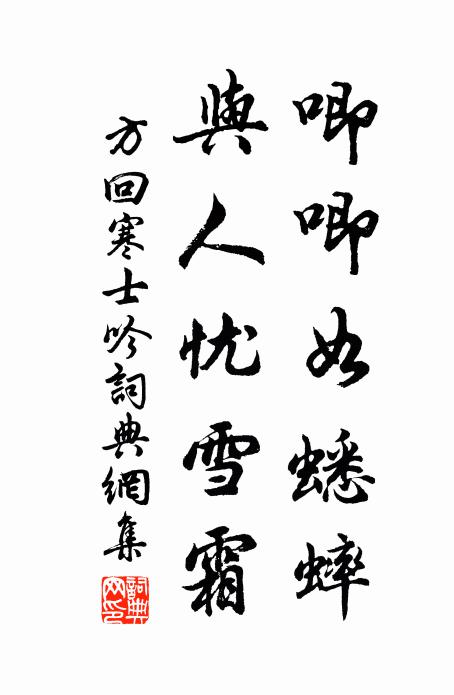 唧唧如蟋蟀
與人忧雪霜
方回寒士吟詞典網集
詞典网印